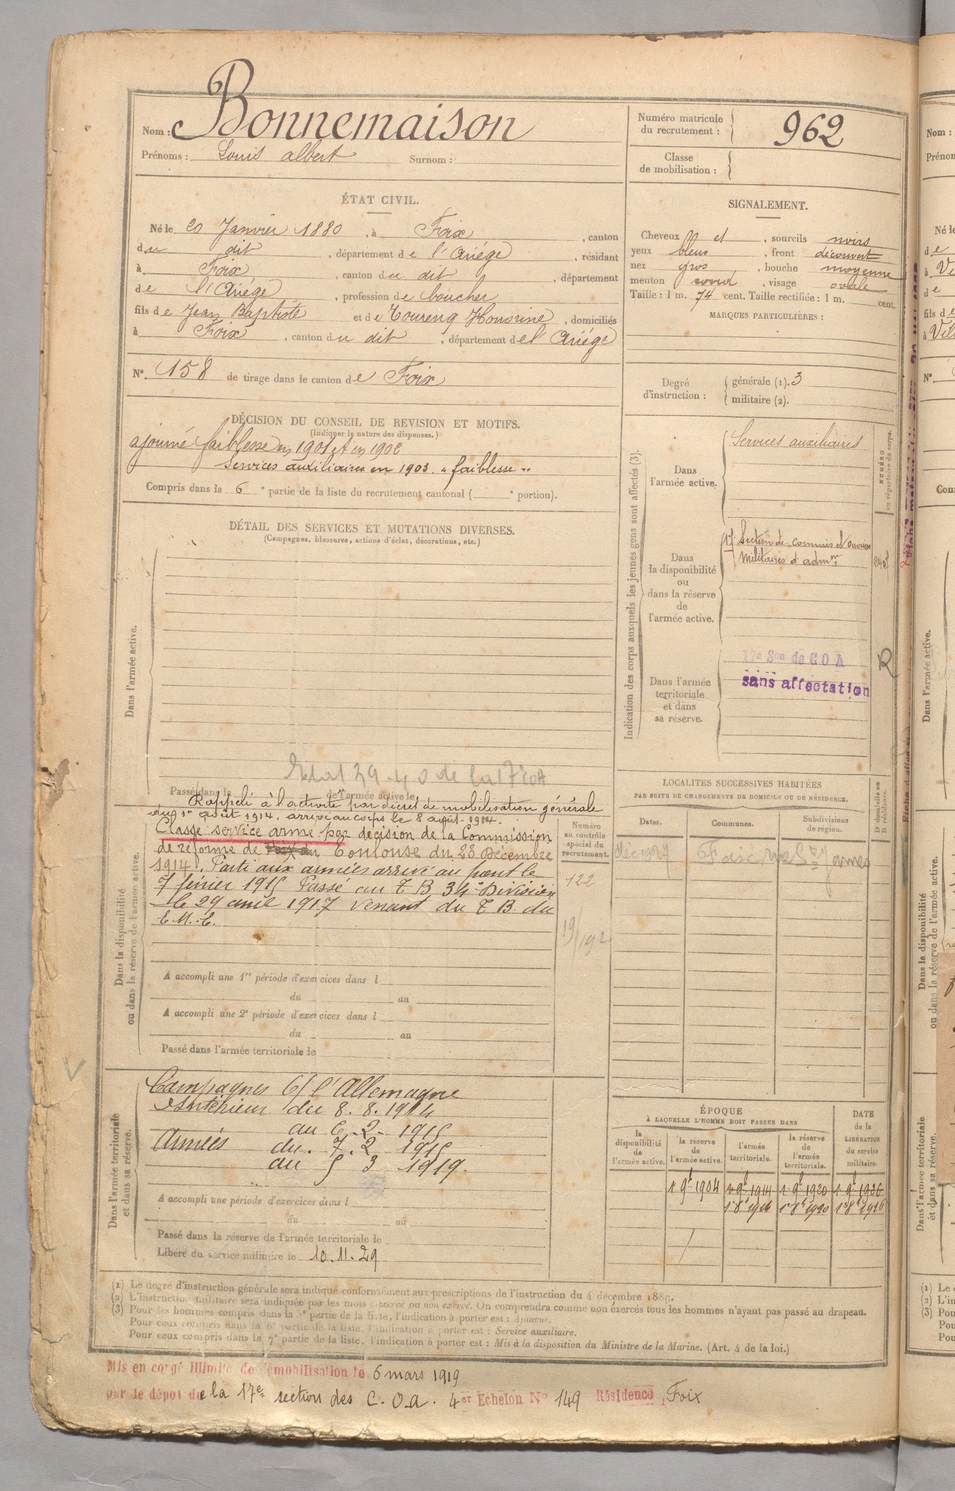 Nom : Bonnemaison
Prénoms : Louis albert Surnom :
ÉTAT CIVIL.
Né le 20 Janvier 1880, à Foix, canton
du dit, département de l'Ariége, résidant
à Foix, canton du dit, département
de l'Ariége, profession de boucher
fils de Jean Baptiste et de Toureng Honorine, domiciliés
à Foix, canton du dit, département de l'Ariége
N° 158 de tirage dans le canton de Foix
DÉCISION DU CONSEIL DE REVISION ET MOTIFS.
(Indiquer la nature des dispenses.)
ajourné faiblesse en 1901 et en 1902
Services auxiliaires en 1903. "faiblesse"
Compris dans la 6e partie de la liste du recrutement cantonal ( e portion).
DÉTAIL DES SERVICES ET MUTATIONS DIVERSES.
(Campagnes, blessures, actions d'éclat, décorations, etc.)
Dans l'armée active.
Passé dans de l'armée active le
Rappelé à l'activité par décret de mobilisation générale
du 1er août 1914, arrivé au corps le 8 août 1914.
Classé service armé par décision de la Commission
de réforme de Toulouse du 23 Décembre
1914. Parti aux armées arrivé au front le
7 février 1915 Passé au T B 34e Division
le 29 avril 1917 venant du T. B. du
E. M. C.
Dans la disponibilité
ou dans la réserve de l'armée active.
A accompli une 1re période d'exercices dans l
du au
A accompli une 2e période d'exercices dans l
du au
Passé dans l'armée territoriale le
Numéro
au contrôle
spécial du
recrutement.
122
Campagnes C/ l'Allemagne
Intérieur du 8. 8. 1914
au 6-2-1915
Armées du 7. 2 - 1915
au 5 3 1919.
Dans l'armée territoriale
et dans sa réserve.
A accompli une période d'exercices dans l
du au
Passé dans la réserve de l'armée territoriale le
Libéré du service militaire le 10. 11. 29
Numéro matricule
du recrutement : 962
Classe
de mobilisation :
SIGNALEMENT.
Cheveux n d, sourcils noirs
yeux bleus, front découvert
nez gros, bouche moyenne
menton rond, visage ovale
Taille : 1 m. 74 cent. Taille rectifiée : 1 m. cent.
MARQUES PARTICULIÈRES :
Degré
d'instruction :
générale (1). 3
militaire (2).
Indication des corps auxquels les jeunes gens sont affectés (3).
Dans
l'armée active.
Services auxiliaires
Dans
la disponibilité
ou
dans la réserve
de
l'armée active.
17 Section de commis et ouvriers
militaires d'admon
Dans l'armée
territoriale
et dans
sa réserve.
17e Son de COA
sans affectation
R
LOCALITÉS SUCCESSIVES HABITÉES
PAR SUITE DE CHANGEMENTS DE DOMICILE OU DE RÉSIDENCE.
Dates.
Communes.
Subdivisions
de région.
D domicile ou
R résidence.
ÉPOQUE
À LAQUELLE L'HOMME DOIT PASSER DANS
la
disponibilité
de
l'armée active.
la réserve
de
l'armée active.
l'armée
territoriale.
la réserve
de
l'armée
territoriale.
DATE
de la
LIBÉRATION
du service
militaire.
1 9bre 1904
(1) Le degré d'instruction générale sera indiqué conformément aux prescriptions de l'instruction du 4 décembre 1889.
(2) L'instruction militaire sera indiquée par les mots : exercé ou non exercé. On comprendra comme non exercés tous les hommes n'ayant pas passé au drapeau.
(3) Pour les hommes compris dans la e partie de la liste, l'indication à porter est : Ajourné.
Pour ceux compris dans la 6e partie de la liste, l'indication à porter est : Service auxiliaire.
Pour ceux compris dans la 7e partie de la liste, l'indication à porter est : Mis à la disposition du Ministre de la Marine. (Art. 4 de la loi.)
Mis en congé illimité de démobilisation le 5 mars 1919
par le dépôt de la 17e section des C. O. A. 4er Echelon N° 149 Résidence Foix